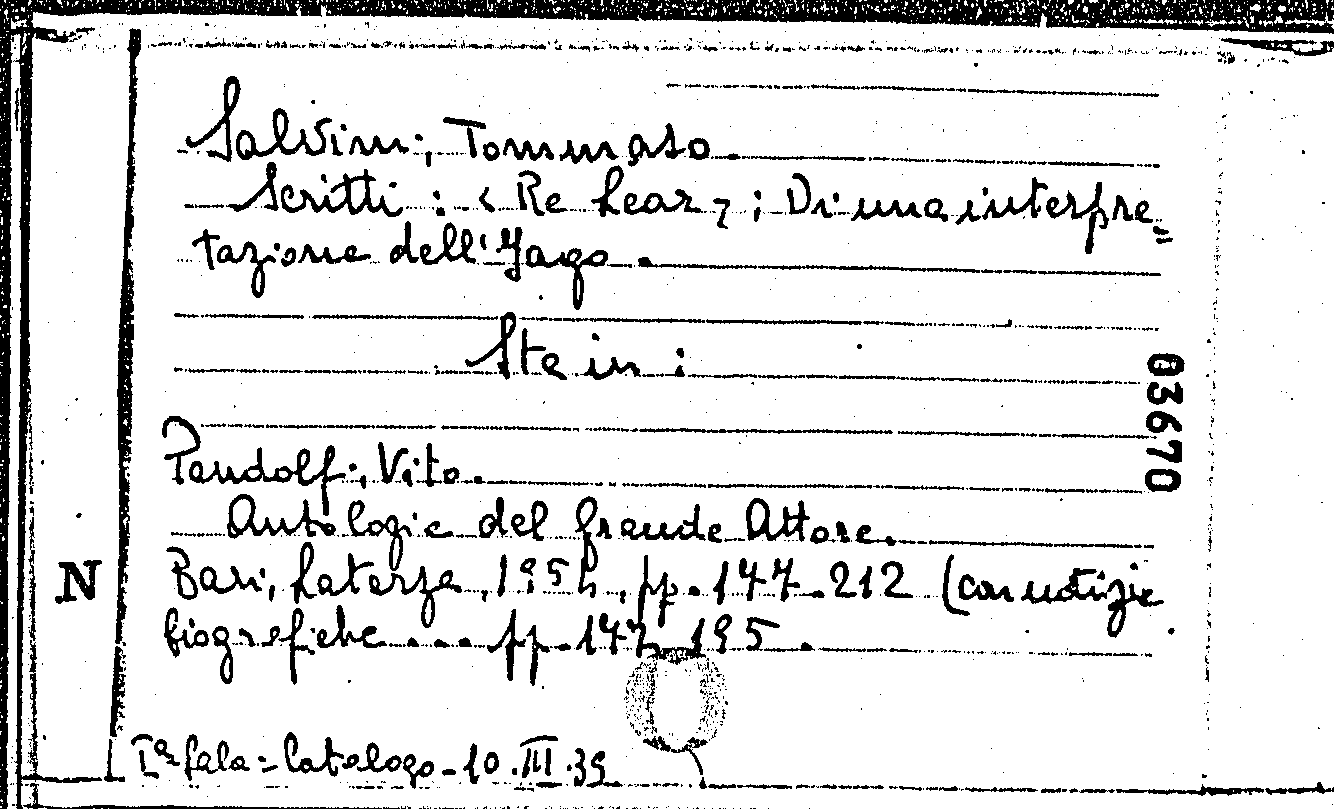 Salvini, Tommaso.
Scritti: < Re Lear > ; Di una interpre=
tazione dell'Jago.
Sta in:
Pandolfi, Vito.
Antologia del grande Attore.
Bari, Laterza, 1954, pp. 147-212 (con notizie
biografiche ... pp. 147-195.
Iª Sala = Catalogo - 10.III.39
N
03670